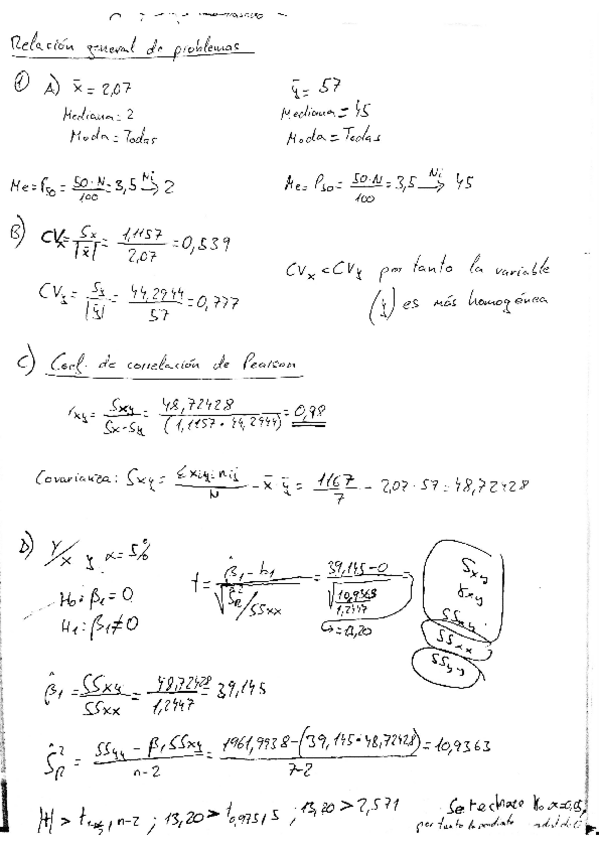 Relación general de problemas
① A) x̄ = 2,07 ȳ = 57
Mediana = 2 Mediana = 45
Moda = Todas Moda = Todas
Me = P50 = 50·N/100 = 3,5 →Ni 2 Me = P50 = 50·N/100 = 3,5 →Ni 45
B) CVx = Sx/|x̄| = 1,1157/2,07 = 0,539
CVx < CVy por tanto la variable
(y) es más homogénea
CVy = Sy/|ȳ| = 44,2944/57 = 0,777
C) Coef. de correlación de Pearson
rxy = Sxy/Sx·Sy = 48,72428/(1,1157·44,2944) = 0,98
Covarianza: Sxy = Σxiyi·nij/N − x̄ ȳ = 1167/7 − 2,07·57 = 48,72428
D) Y/x y α = 5%
H0: β1 = 0
H1: β1 ≠ 0
t = β̂1 − b1/√ŜR²/SSxx = 39,145 − 0/√10,9363/1,2447
↳ = 13,20
Sxy
rxy
SSxy
SSxx
SSyy
β̂1 = SSxy/SSxx = 48,72428/1,2447 = 39,145
ŜR² = SSyy − β1SSxy/n−2 = 1961,9938 − (39,145·48,72428)/7−2 = 10,9363
|t| > , n−2 ; 13,20 > t0,975,5 ; 13,20 > 2,571 Se rechaza H0 α=0,05,
por tanto